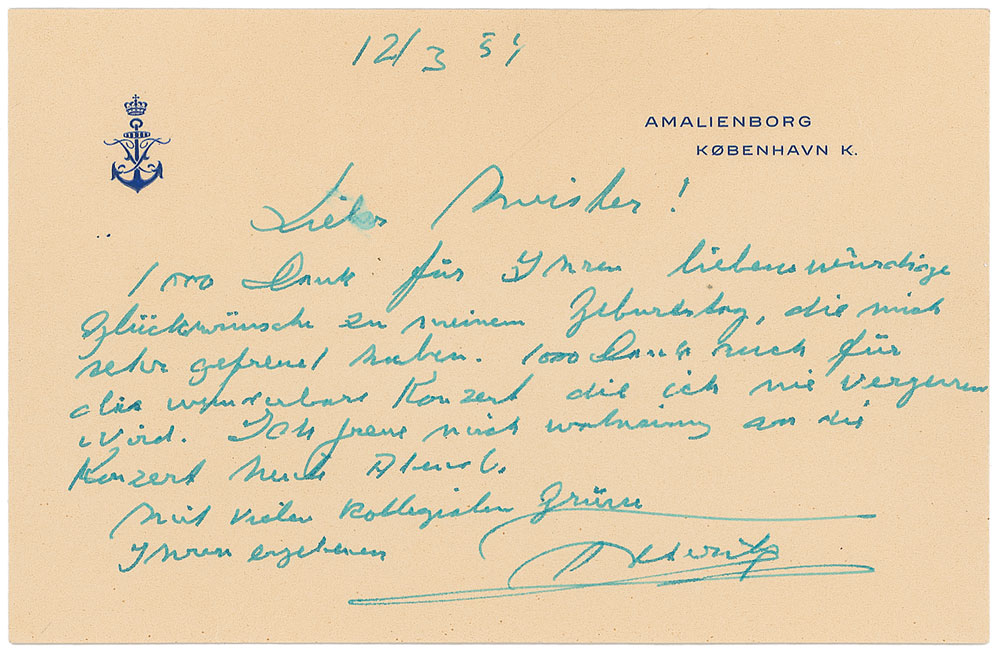 12/3 51
AMALIENBORG
KØBENHAVN K.
Lieber Meister!
1000 Dank für Ihren liebenswürdige
Glückwünsche zu meinem Geburtstag, die mich
sehr gefreut haben. 1000 Dank auch für
das wunderbare Konzert die ich nie vergessen
wird. Ich freue mich wahnsinnig an die
Konzert heute Abend.
Mit vielen kollegialen Grüsse
Ihren ergebenen